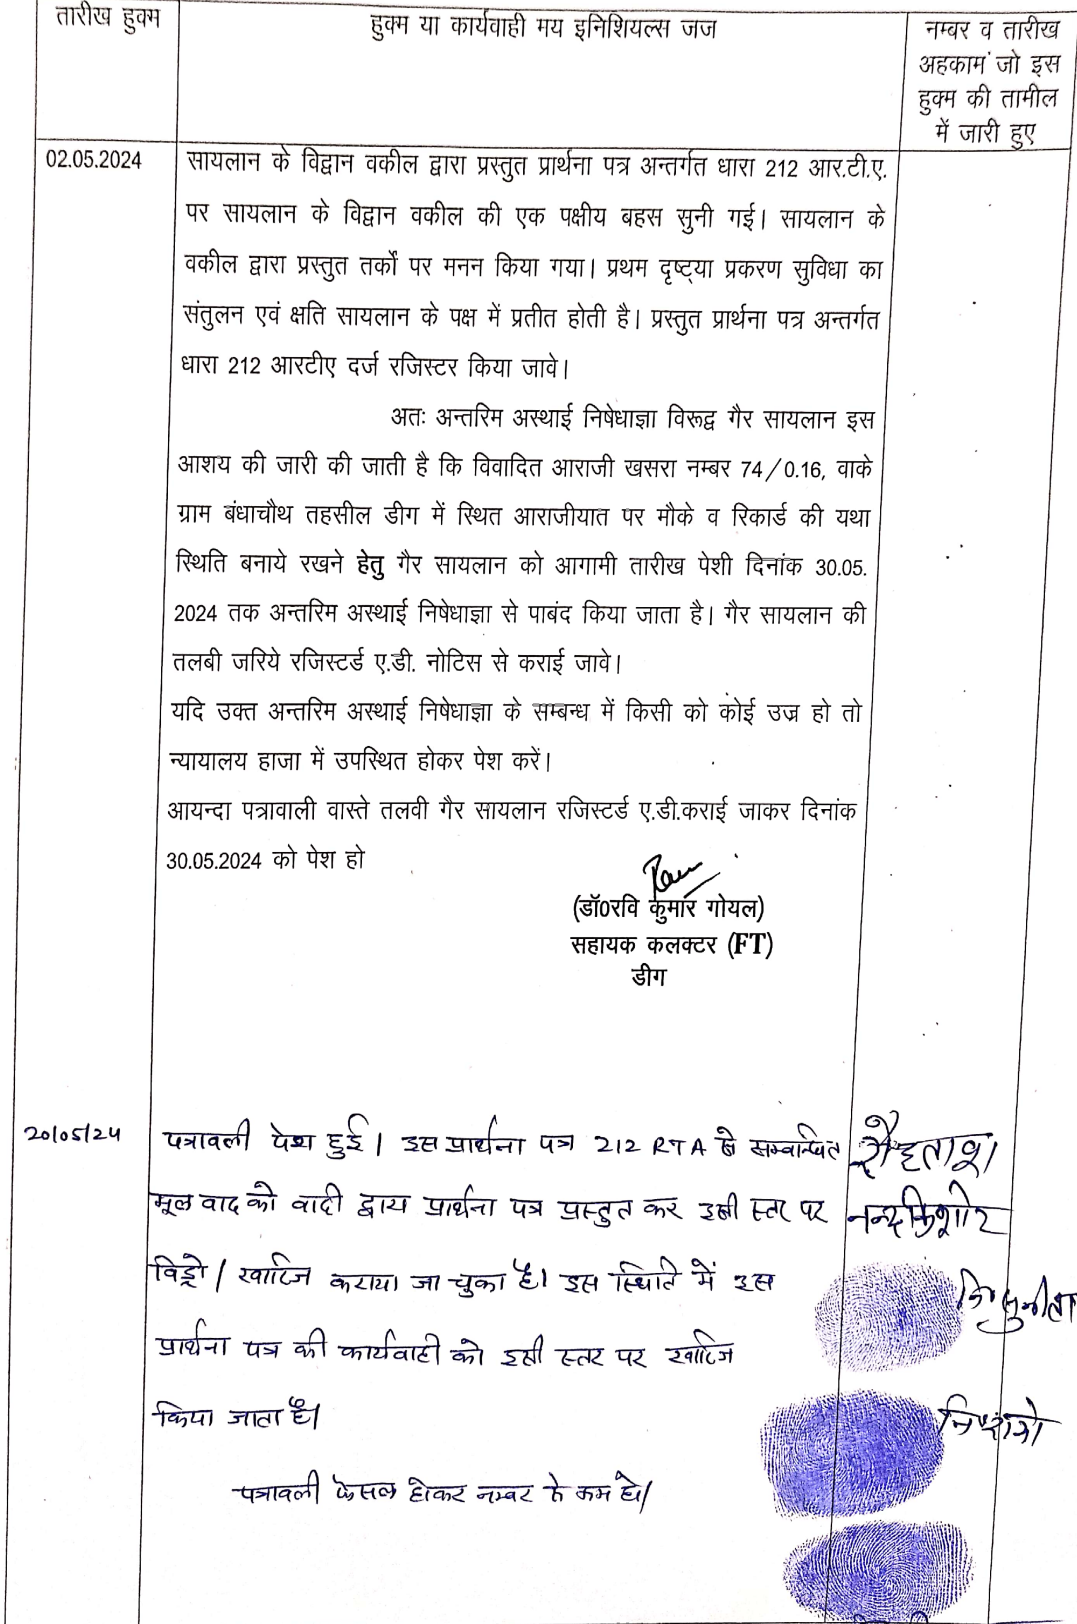 तारीख हुक्म
हुक्म या कार्यवाही मय इनिशियल्स जज
नम्बर व तारीख
अहकाम जो इस
हुक्म की तामील
में जारी हुए
02.05.2024
सायलान के विद्वान वकील द्वारा प्रस्तुत प्रार्थना पत्र अन्तर्गत धारा 212 आर.टी.ए.
पर सायलान के विद्वान वकील की एक पक्षीय बहस सुनी गई। सायलान के
वकील द्वारा प्रस्तुत तर्कों पर मनन किया गया। प्रथम दृष्ट्या प्रकरण सुविधा का
संतुलन एवं क्षति सायलान के पक्ष में प्रतीत होती है। प्रस्तुत प्रार्थना पत्र अन्तर्गत
धारा 212 आरटीए दर्ज रजिस्टर किया जावे।
अतः अन्तरिम अस्थाई निषेधाज्ञा विरूद्व गैर सायलान इस
आशय की जारी की जाती है कि विवादित आराजी खसरा नम्बर 74/0.16, वाके
ग्राम बंधाचौथ तहसील डीग में स्थित आराजीयात पर मौके व रिकार्ड की यथा
स्थिति बनाये रखने हेतु गैर सायलान को आगामी तारीख पेशी दिनांक 30.05.
2024 तक अन्तरिम अस्थाई निषेधाज्ञा से पाबंद किया जाता है। गैर सायलान की
तलबी जरिये रजिस्टर्ड ए.डी. नोटिस से कराई जावे।
यदि उक्त अन्तरिम अस्थाई निषेधाज्ञा के सम्बन्ध में किसी को कोई उज्र हो तो
न्यायालय हाजा में उपस्थित होकर पेश करें।
आयन्दा पत्रावाली वास्ते तलवी गैर सायलान रजिस्टर्ड ए.डी.कराई जाकर दिनांक
30.05.2024 को पेश हो
(डॉ0रवि कुमार गोयल)
सहायक कलक्टर (FT)
डीग
20/05/24
पत्रावली पेश हुई। इस प्रार्थना पत्र 212 RTA से सम्बन्धित
मूल वाद को वादी द्वारा प्रार्थना पत्र प्रस्तुत कर इसी स्तर पर
विड्रो / खारिज कराया जा चुका है। इस स्थिति में इस
प्रार्थना पत्र की कार्यवाही को इसी स्तर पर खारिज
किया जाता है।
पत्रावली फैसल होकर नम्बर से कम हो।
रौहताश
नन्दकिशोर
नि सुनीता